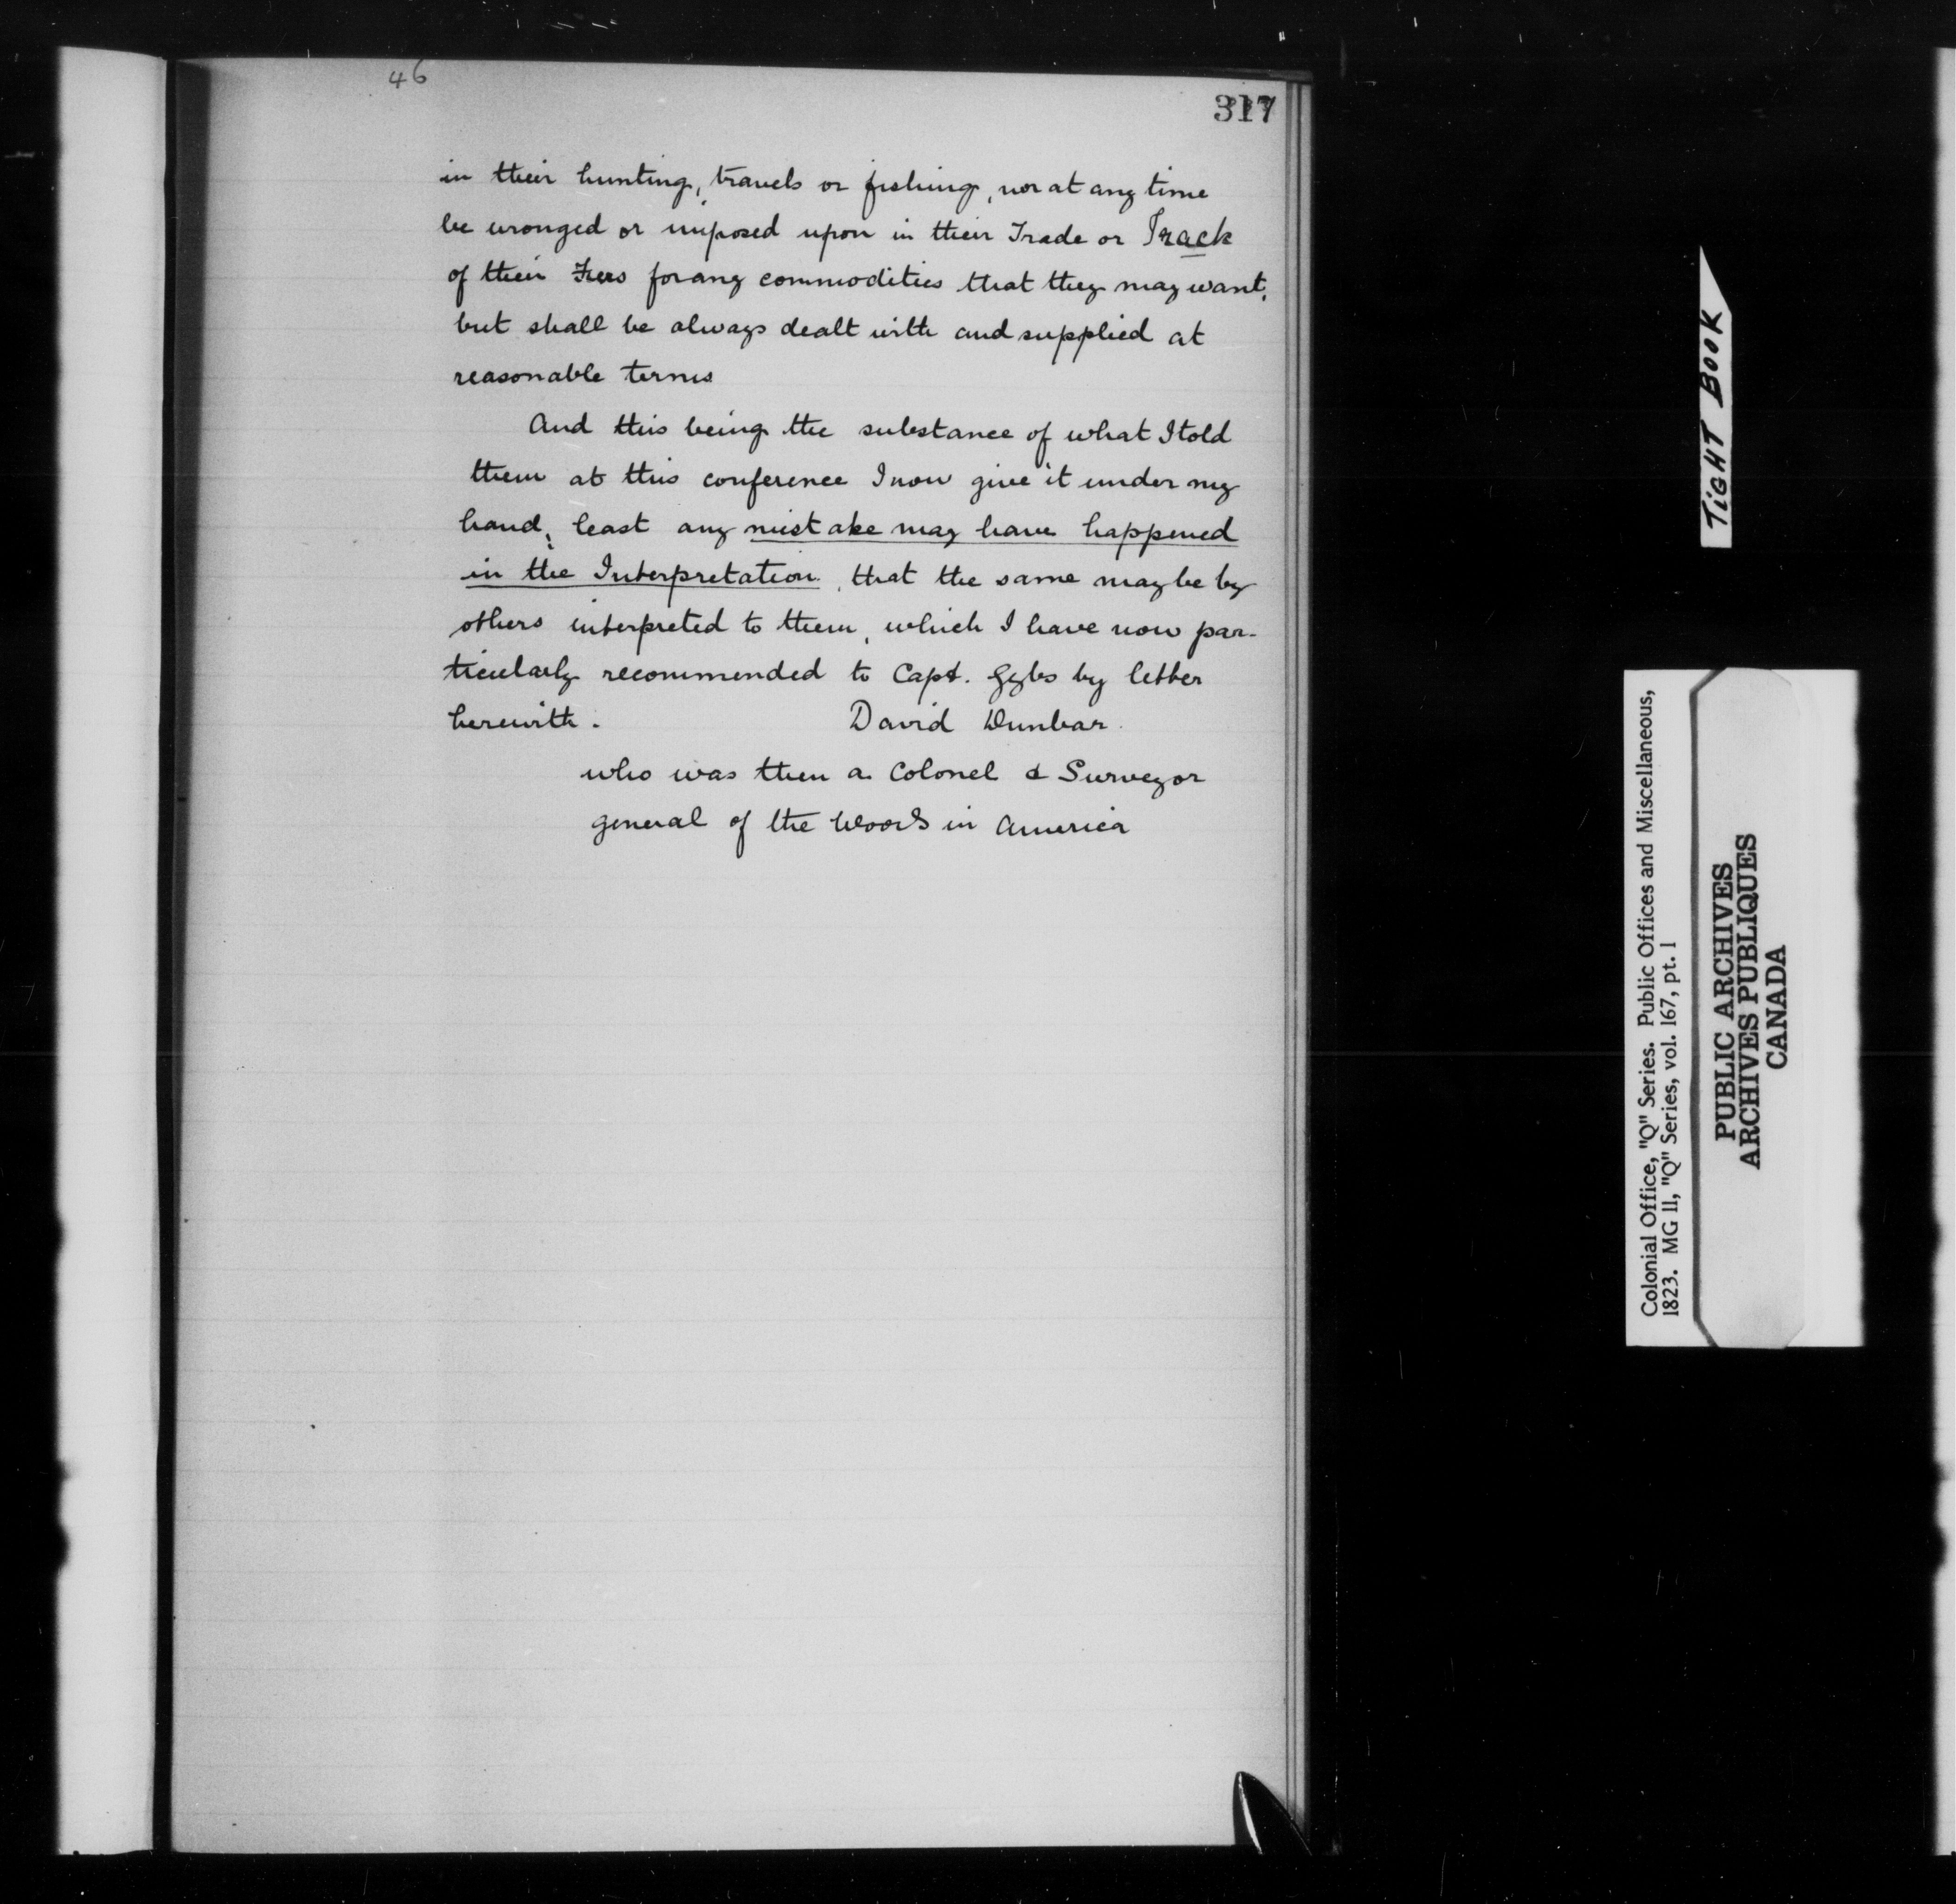 46
317
in their hunting, travels or fishing, nor at any time
be wronged or imposed upon in their Trade or Track
of their Furs for any commodities that they may want,
but shall be always dealt with and supplied at
reasonable terms
And this being the substance of what I told
them at this conference I now give it under my
hand, least any mistake may have happened
in the Interpretation, that the same may be by
others interpreted to them, which I have now par-
ticularly recommended to Capt. Gyles by letter
herewith. David Dunbar.
who was then a Colonel & Surveyor
general of the Woods in America
TIGHT BOOK
Colonial Office, "Q" Series. Public Offices and Miscellaneous,
1823. MG 11, "Q" Series, vol. 167, pt. 1
PUBLIC ARCHIVES
ARCHIVES PUBLIQUES
CANADA